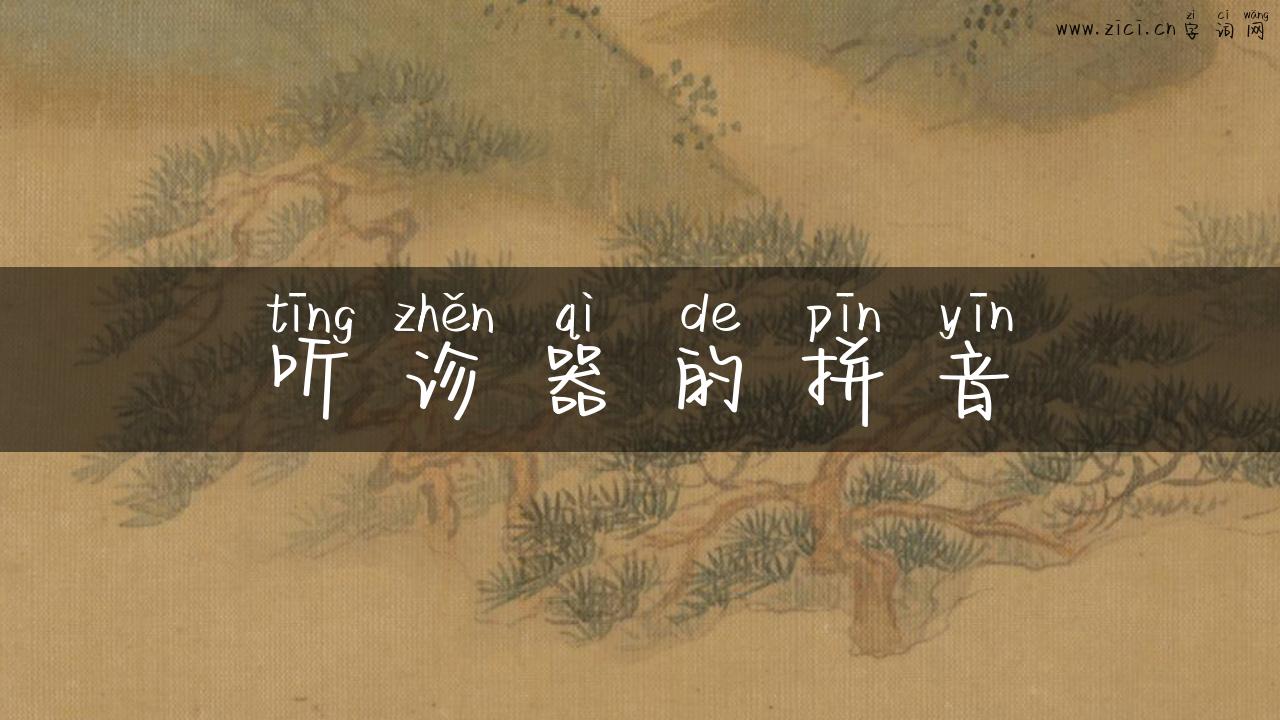 zì cí wǎng
www.zici.cn 字 词 网
tīng zhěn qì de pīn yīn
听 诊 器 的 拼 音